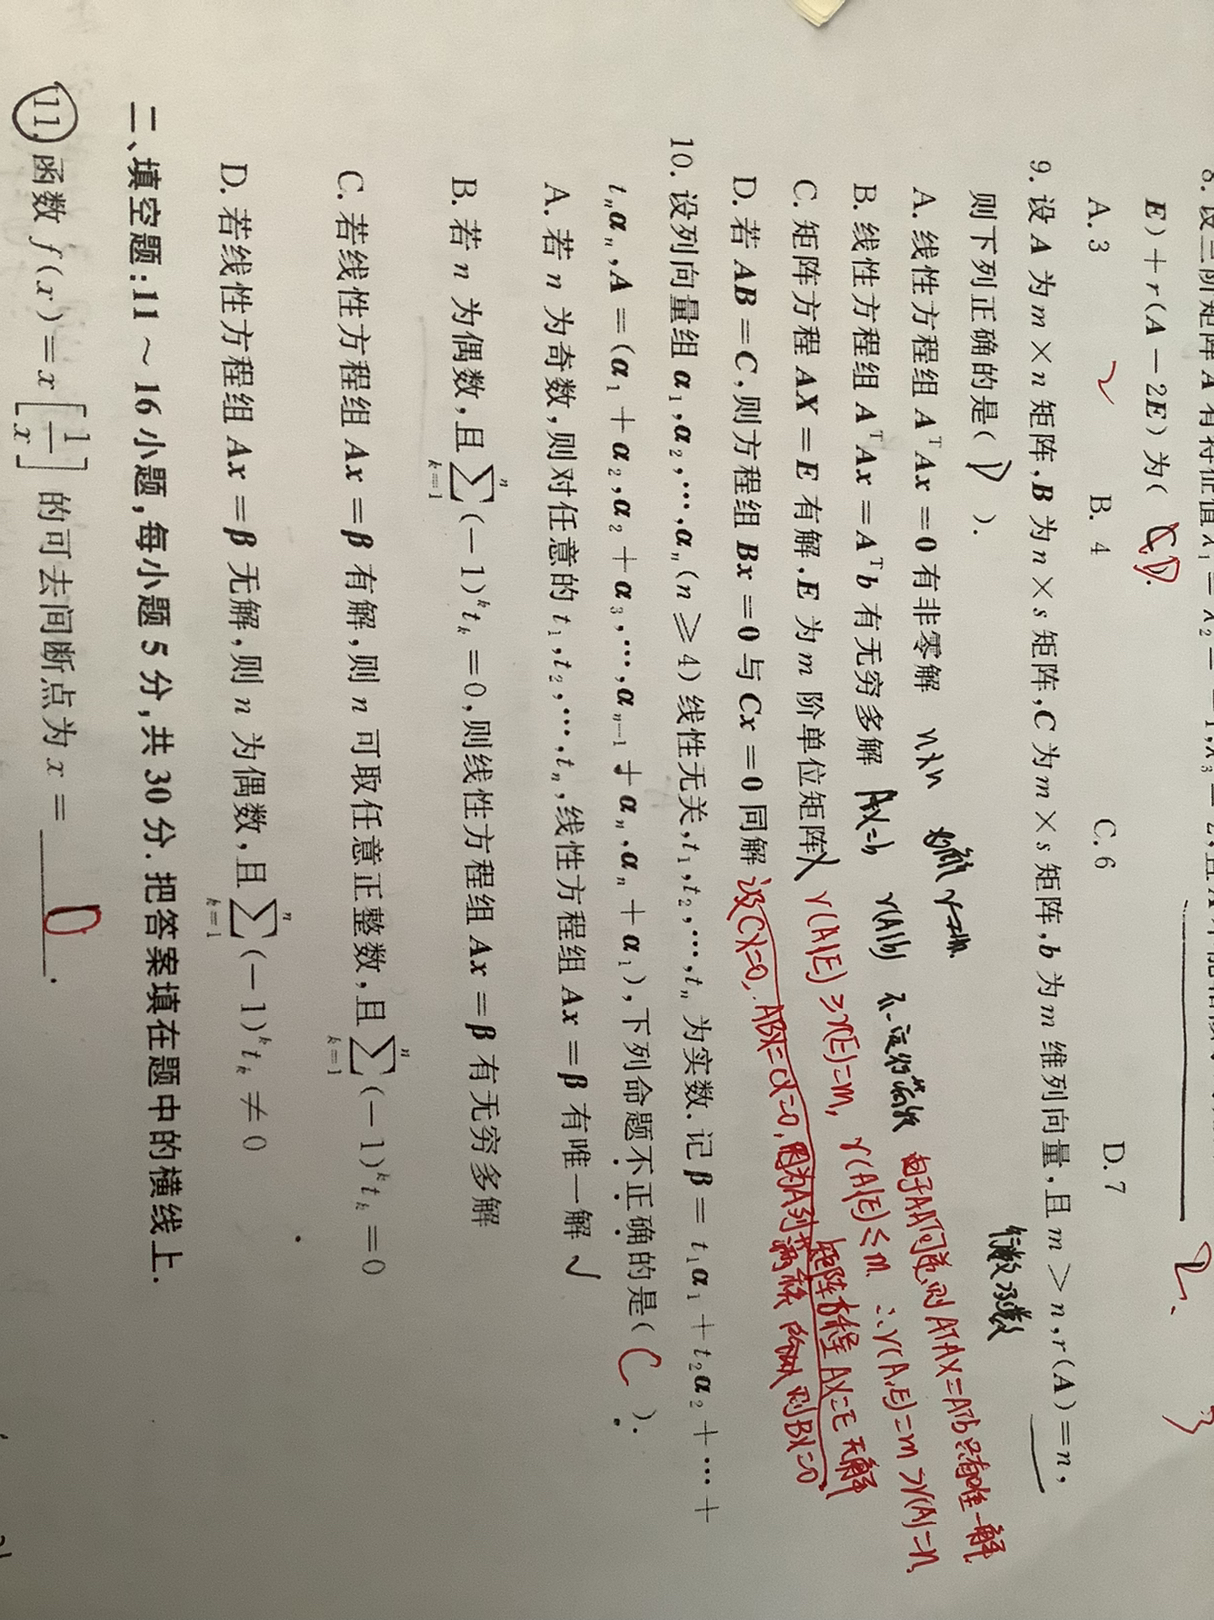 E)+r(A-2E)为( C D ).
A. 3 B. 4 C. 6 D. 7
9. 设 A 为 m×n 矩阵,B 为 n×s 矩阵,C 为 m×s 矩阵,b 为 m 维列向量,且 m>n,r(A)=n,
则下列正确的是( D ).
A. 线性方程组 AᵀAx=0 有非零解
B. 线性方程组 AᵀAx=Aᵀb 有无穷多解 Ax=b r(A|b)
由于AAT可逆则ATAX=ATb只有唯一解
C. 矩阵方程 AX=E 有解,E 为 m 阶单位矩阵 r(A|E)≥r(E)=m, r(A|E)≤m ∴r(A,E)=m>r(A)=n,
矩阵方程AX=E无解
D. 若 AB=C,则方程组 Bx=0 与 Cx=0 同解 设CX=0, ABX=CX=0,因为A列满秩 则BX=0,
10. 设列向量组 α₁,α₂,⋯,αₙ(n≥4)线性无关,t₁,t₂,⋯,tₙ 为实数. 记 β=t₁α₁+t₂α₂+⋯+
tₙαₙ,A=(α₁+α₂,α₂+α₃,⋯,αₙ₋₁+αₙ,αₙ+α₁),下列命题不正确的是( C ).
A. 若 n 为奇数,则对任意的 t₁,t₂,⋯,tₙ,线性方程组 Ax=β 有唯一解 √
B. 若 n 为偶数,且 ∑ₖ₌₁ⁿ(-1)ᵏtₖ=0,则线性方程组 Ax=β 有无穷多解
C. 若线性方程组 Ax=β 有解,则 n 可取任意正整数,且 ∑ₖ₌₁ⁿ(-1)ᵏtₖ=0
D. 若线性方程组 Ax=β 无解,则 n 为偶数,且 ∑ₖ₌₁ⁿ(-1)ᵏtₖ≠0
二、填空题:11～16 小题,每小题 5 分,共 30 分. 把答案填在题中的横线上.
11. 函数 f(x)=x[1/x] 的可去间断点为 x= 0 .